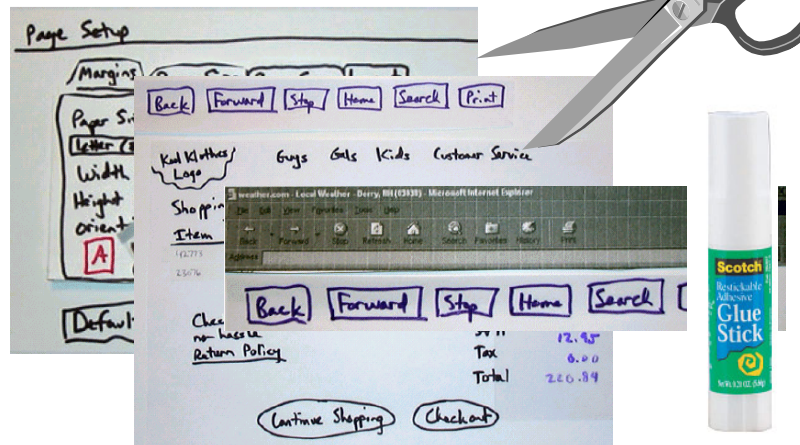 Page Setup
Margins
Paper
Letter
Width
Height
orient
A
Back Forward Stop Home Search Print
Kool Klothes
Logo
Guys Gals Kids Customer Service
Item
weather.com - Local Weather - Derry, NH (03038) - Microsoft Internet Explorer
File Edit View Favorites Tools Help
Back Forward Stop Refresh Home Search Favorites History Print
Address
Back Forward Stop Home Search
no hassle
Return Policy
12.95
Tax 0.00
Total 220.89
Continue Shopping Checkout
Scotch
Restickable
Adhesive
Glue
Stick